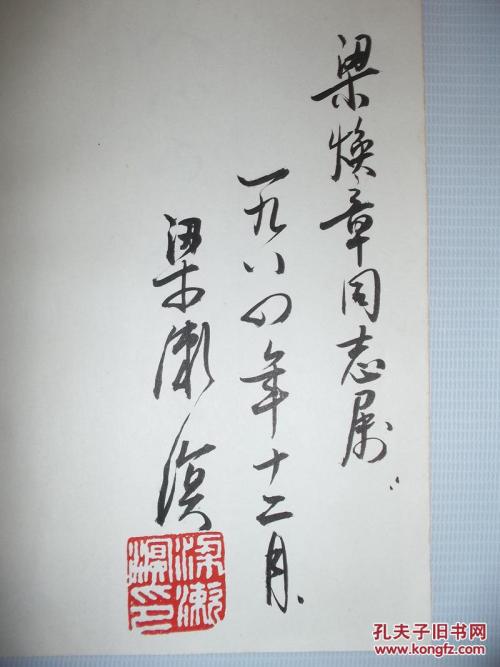 梁焕章同志属
一九八四年十二月
梁漱溟
梁漱溟印
孔夫子旧书网
www.kongfz.com